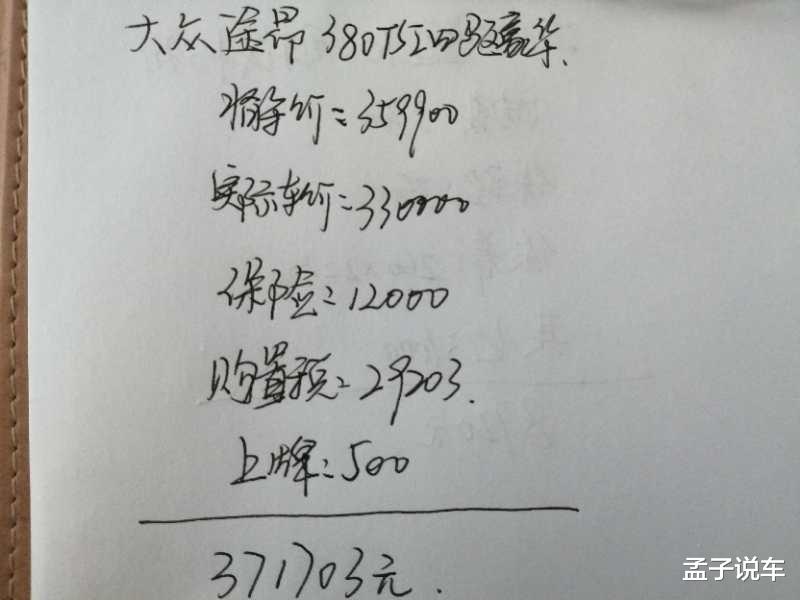 大众途昂380TSI四驱豪华.
指导价=359900
实际车价=330000
保险=12000
购置税=29203.
上牌=500
371703元.
孟子说车